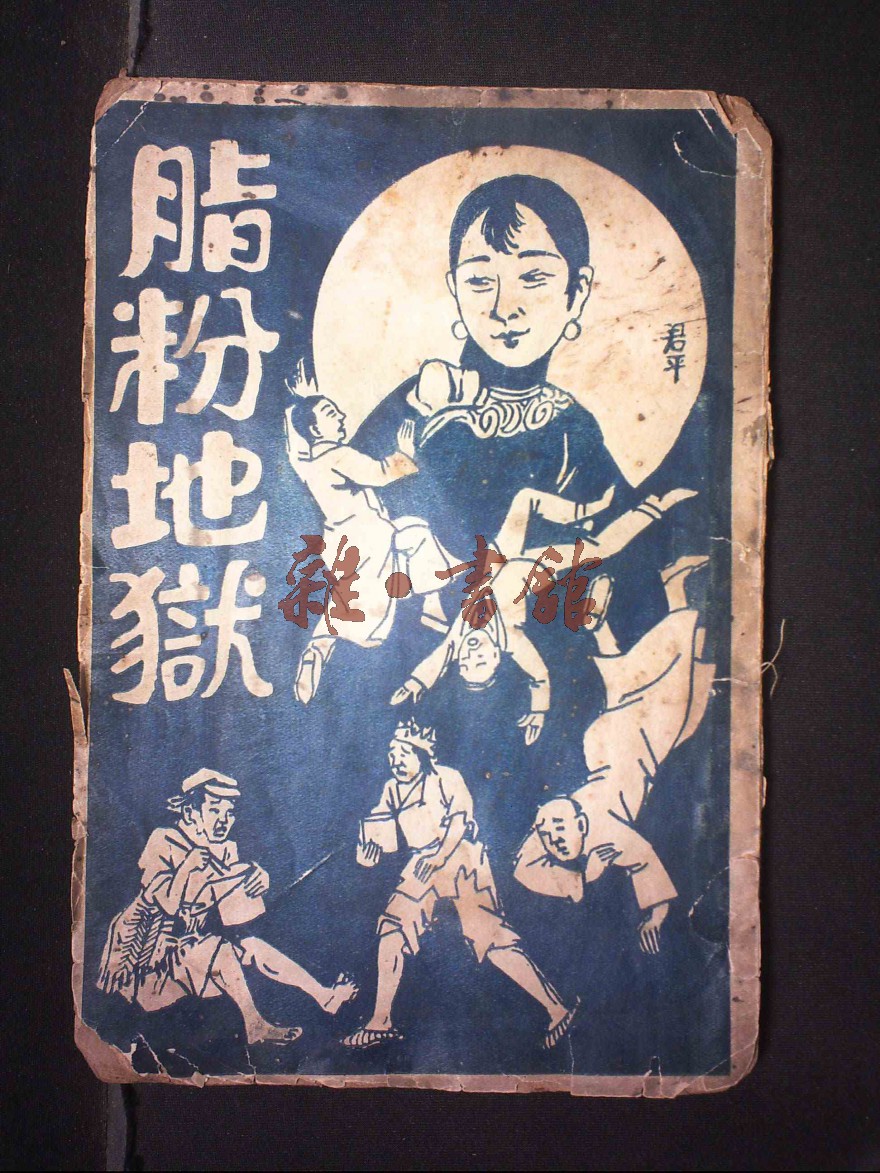 脂粉地獄
君平
雜·書館